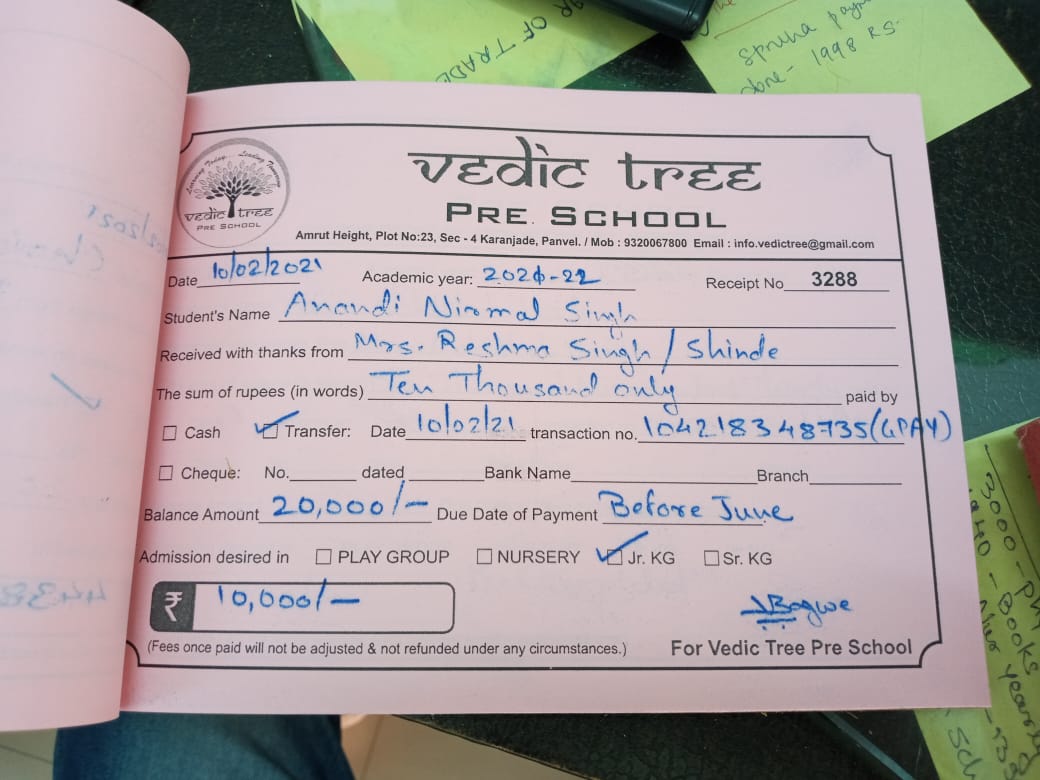 OF TRADE
Spruha paym
done- 1998 RS.
Learning Today... Leading Tomorrow
vedic tree
PRE SCHOOL
vedic tree
PRE SCHOOL
Amrut Height, Plot No:23, Sec - 4 Karanjade, Panvel. / Mob : 9320067800 Email : info.vedictree@gmail.com
Date 10/02/2021 Academic year: 2021-22 Receipt No 3288
Student's Name Anandi Nirmal Singh
Received with thanks from Mrs. Reshma Singh / Shinde
The sum of rupees (in words) Ten Thousand only paid by
Cash Transfer: Date 10/02/21 transaction no. 104218348735 (GPAY)
Cheque: No. dated Bank Name Branch
Balance Amount 20,000/- Due Date of Payment Before June
Admission desired in PLAY GROUP NURSERY Jr. KG Sr. KG
₹ 10,000/-
Bagwe
(Fees once paid will not be adjusted & not refunded under any circumstances.) For Vedic Tree Pre School
3000 - ph
- Books
yearly